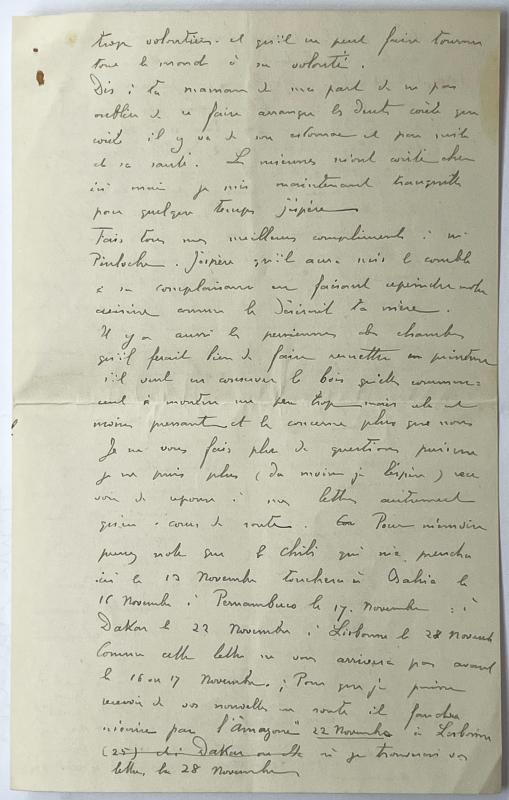 trop volontiers et qu'il ne peut faire tourner
tout le monde à sa volonté.
Dis à ta maman de ma part de ne pas
oublier de se faire arranger les dents coûte que
coûte il y va de son estomac et par suite
et sa santé. Les miennes m'ont coûté cher
ici mais je suis maintenant tranquille
pour quelque temps j'espère
Fais tous mes meilleurs compliments à Mr
J'espère qu'il aura mis le comble
à sa complaisance en faisant repeindre notre
cuisine comme le désirait ta mère.
Il y a aussi les persiennes des chambres
qu'il ferait bien de faire remettre en peinture
s'il veut en conserver le bois qu'elles commen=
cent à montrer un peu trop mais cela est
moins pressant et le concerne plus que nous
Je ne vous fais plus de questions puisque
je ne puis plus (du moins je l'espère) rece
voir de réponse à mes lettres autrement
qu'en cours de route. Pour mémoire
prenez note que le Chili qui me prendra
ici le 13 Novembre touchera à Bahia le
16 Novembre à Pernambuco le 17 Novembre : à
Dakar le 22 Novembre à Lisbonne le 28 Novembre
Comme cette lettre ne vous arrivera pas avant
le 16 ou 17 Novembre. ; Pour que je puisse
recevoir de vos nouvelles en route il faudra
m'écrire par l'"Amazone" 22 Novembre à Lisbonne
(25) Dakar où je trouverai vos
lettres le 28 Novembre